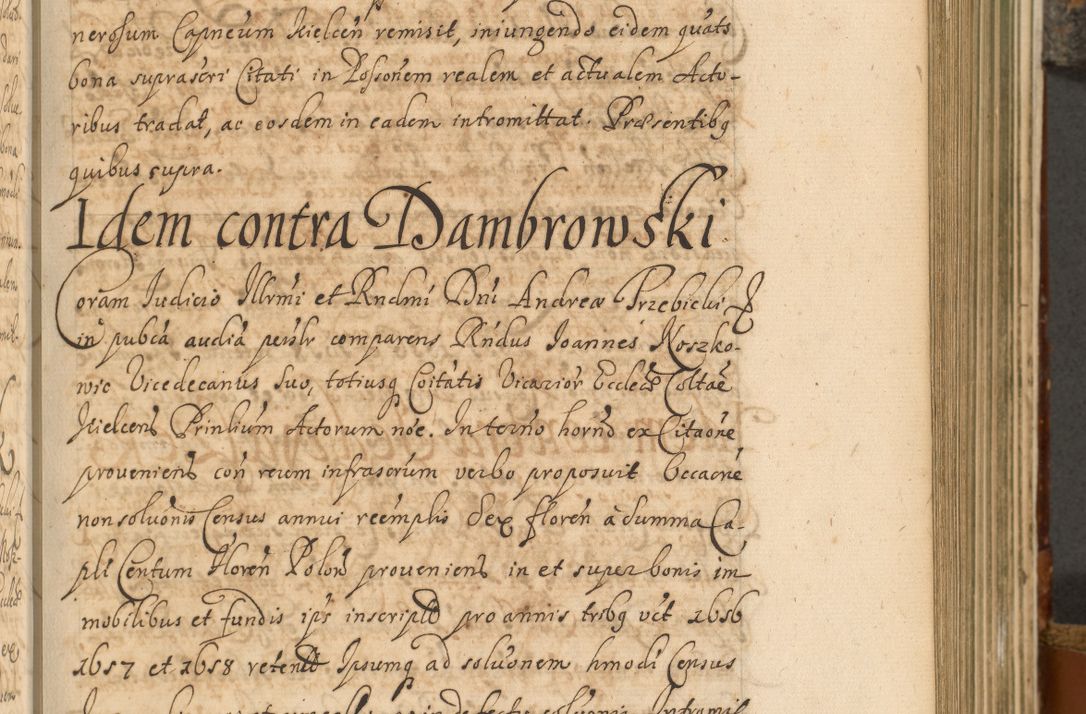 nerosum Capneum Kielceñ remisit, iniungendo eidem quats
bona suprascri Citati in Possonem realem et actualem Acto-
ribus tradat, ac eosdem in eadem intromittat. Præsentibq
quibus supra.
Idem contra Dambrowski
Coram Iudicio Illrmi et Rndmi Dni Andreæ Trzebicki E
in pubca audia psnlr comparens Rñdus Joannes Koszko-
wic Vicedecanus suo, totiusq Coitatis Vicarior Eccleæ Coltæ
Kielcens Prinlium Actorum nõe. In termo horno ex Citaone
proueniens coñ reum infrascrum verbo proposuit Occaone
non soluonis Census annui reemplis sex floreñ a summa Ca-
pli Centum Floreñ Polon prouenieñ in et super bonis im
mobilibus et fundis ips inscript pro annis trsbq vct 1656
1657 et 1658 retent Ipsumq ad soluonem hmodi Census